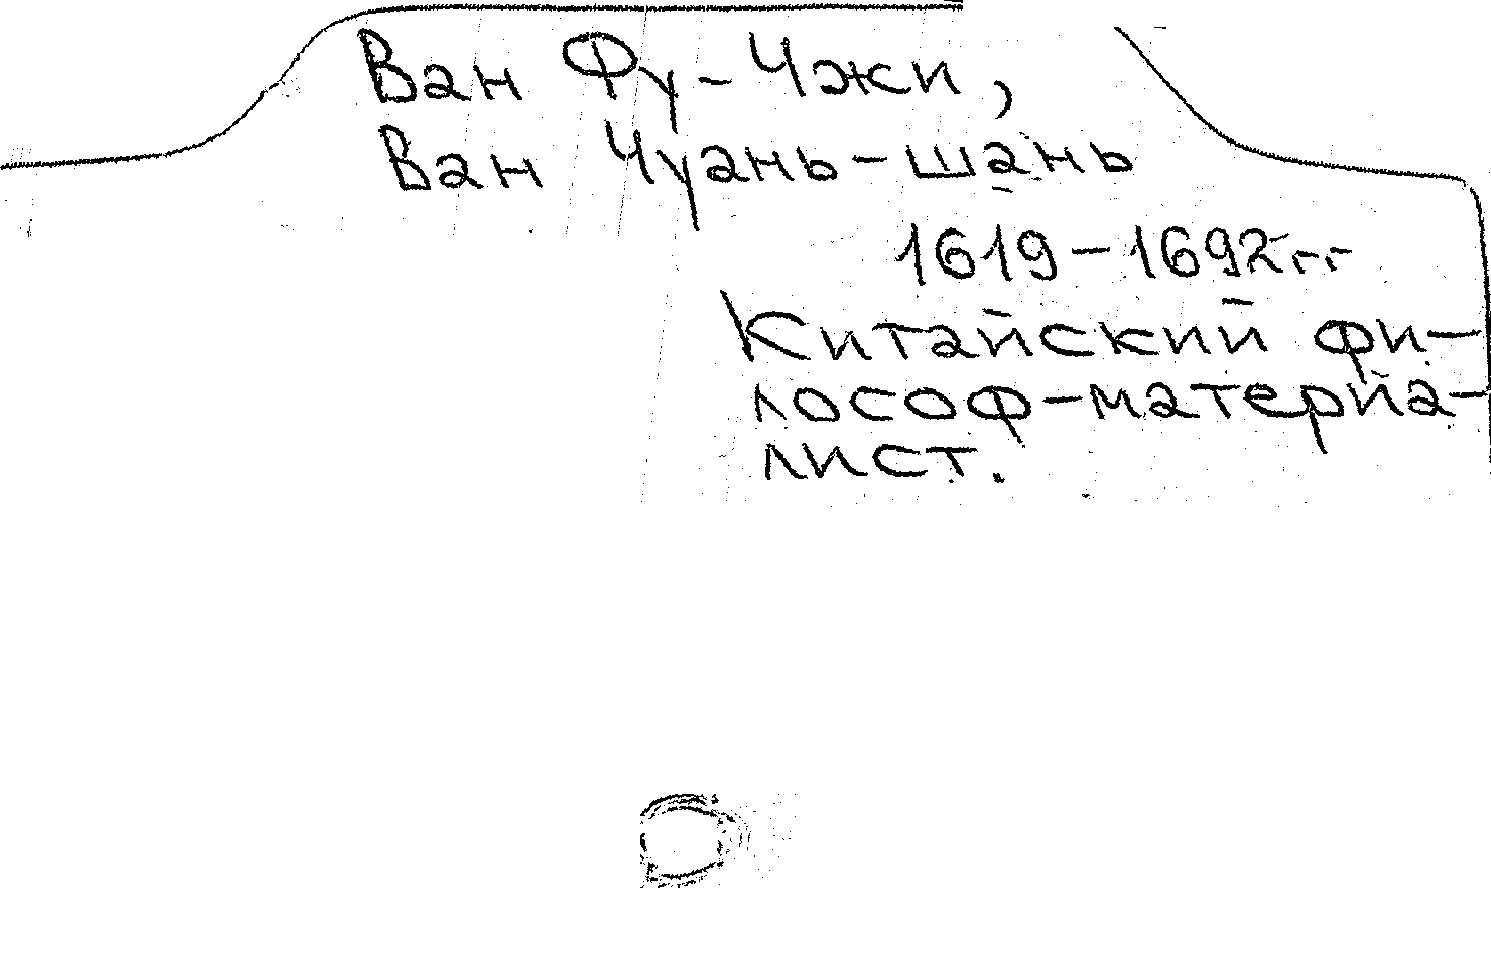 Ван Фу-Чжи,
Ван Чуань-шань
1619-1692гг
Китайский фи-
лософ-материа-
лист.